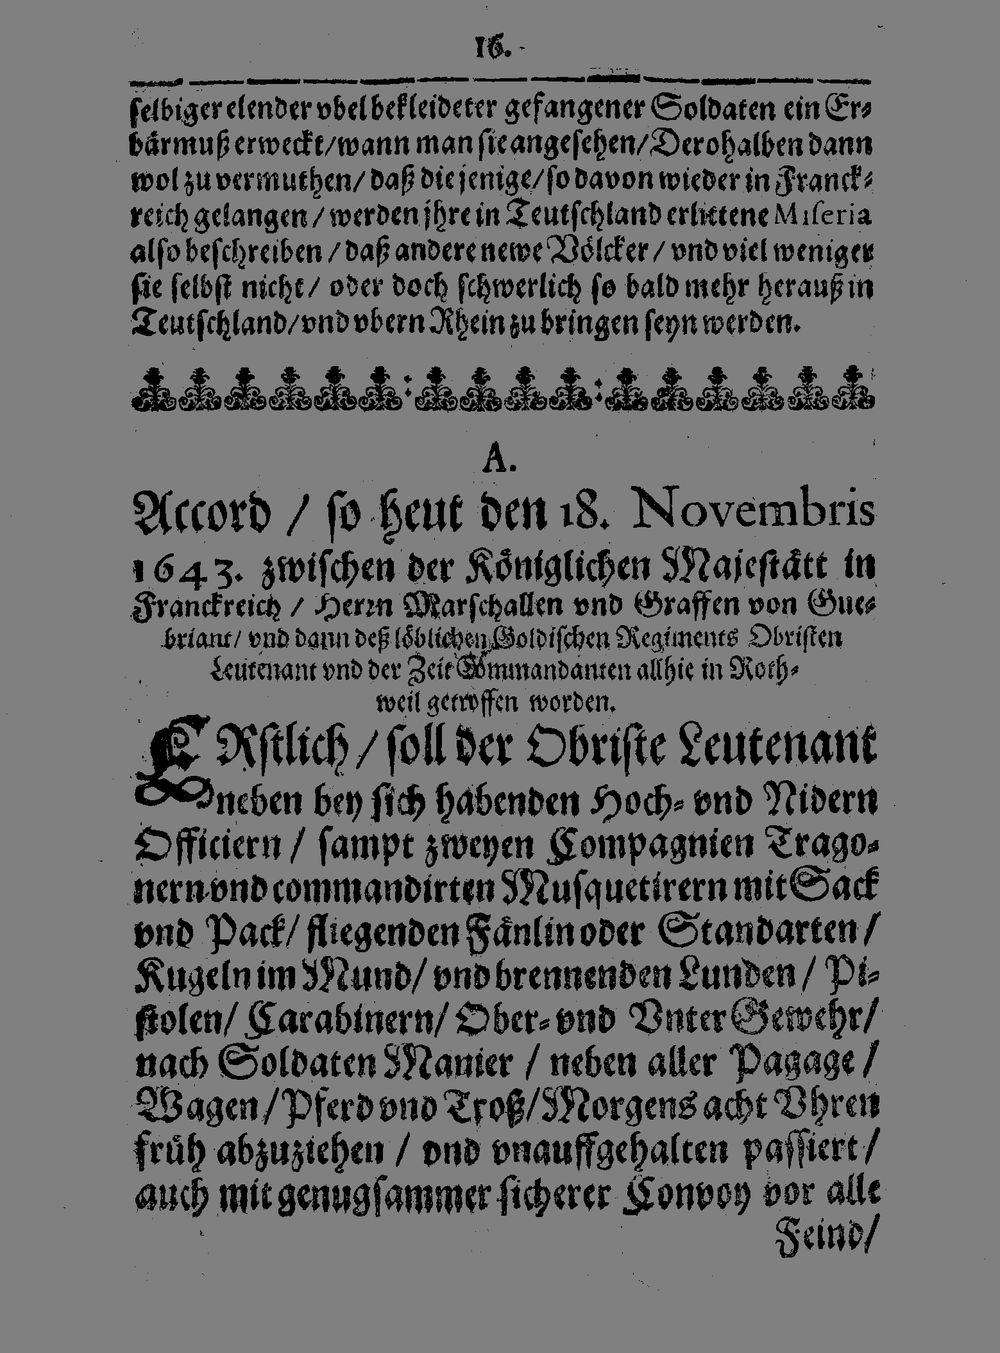 16.
selbiger elender vbel bekleideter gefangener Soldaten ein Er-
bärmuß erweckt/wann man sie angesehen/Derohalben dann
wol zu vermuthen/ daß die jenige/so davon wieder in Franck-
reich gelangen / werden jhre in Teutschland erlittene Miseria
also beschreiben / daß andere newe Völcker / vnd viel weniger
sie selbst nicht / oder doch schwerlich so bald mehr herauß in
Teutschland/vnd vbern Rhein zu bringen seyn werden.
A.
Accord / so heut den 18. Novembris
1643. zwischen der Königlichen Majestätt in
Franckreich / Herrn Marschallen vnd Graffen von Gue-
briant/ vnd dann deß löblichen Goldischen Regiments Obristen
Leutenant vnd der Zeit Commandanten allhie in Roth-
weil getroffen worden.
ERstlich / soll der Obriste Leutenant
neben bey sich habenden Hoch- vnd Nidern
Officiern / sampt zweyen Compagnien Trago-
nern vnd commandirten Musquetirern mit Sack
vnd Pack/ fliegenden Fänlin oder Standarten /
Kugeln im Mund/ vnd brennenden Lunden / Pi-
stolen/ Carabinern/ Ober- vnd Vnter Gewehr/
nach Soldaten Manier / neben aller Pagage /
Wagen / Pferd vnd Troß/ Morgens acht Vhren
früh abzuziehen / vnd vnauffgehalten passiert /
auch mit genugsammer sicherer Convoy vor alle
Feind/